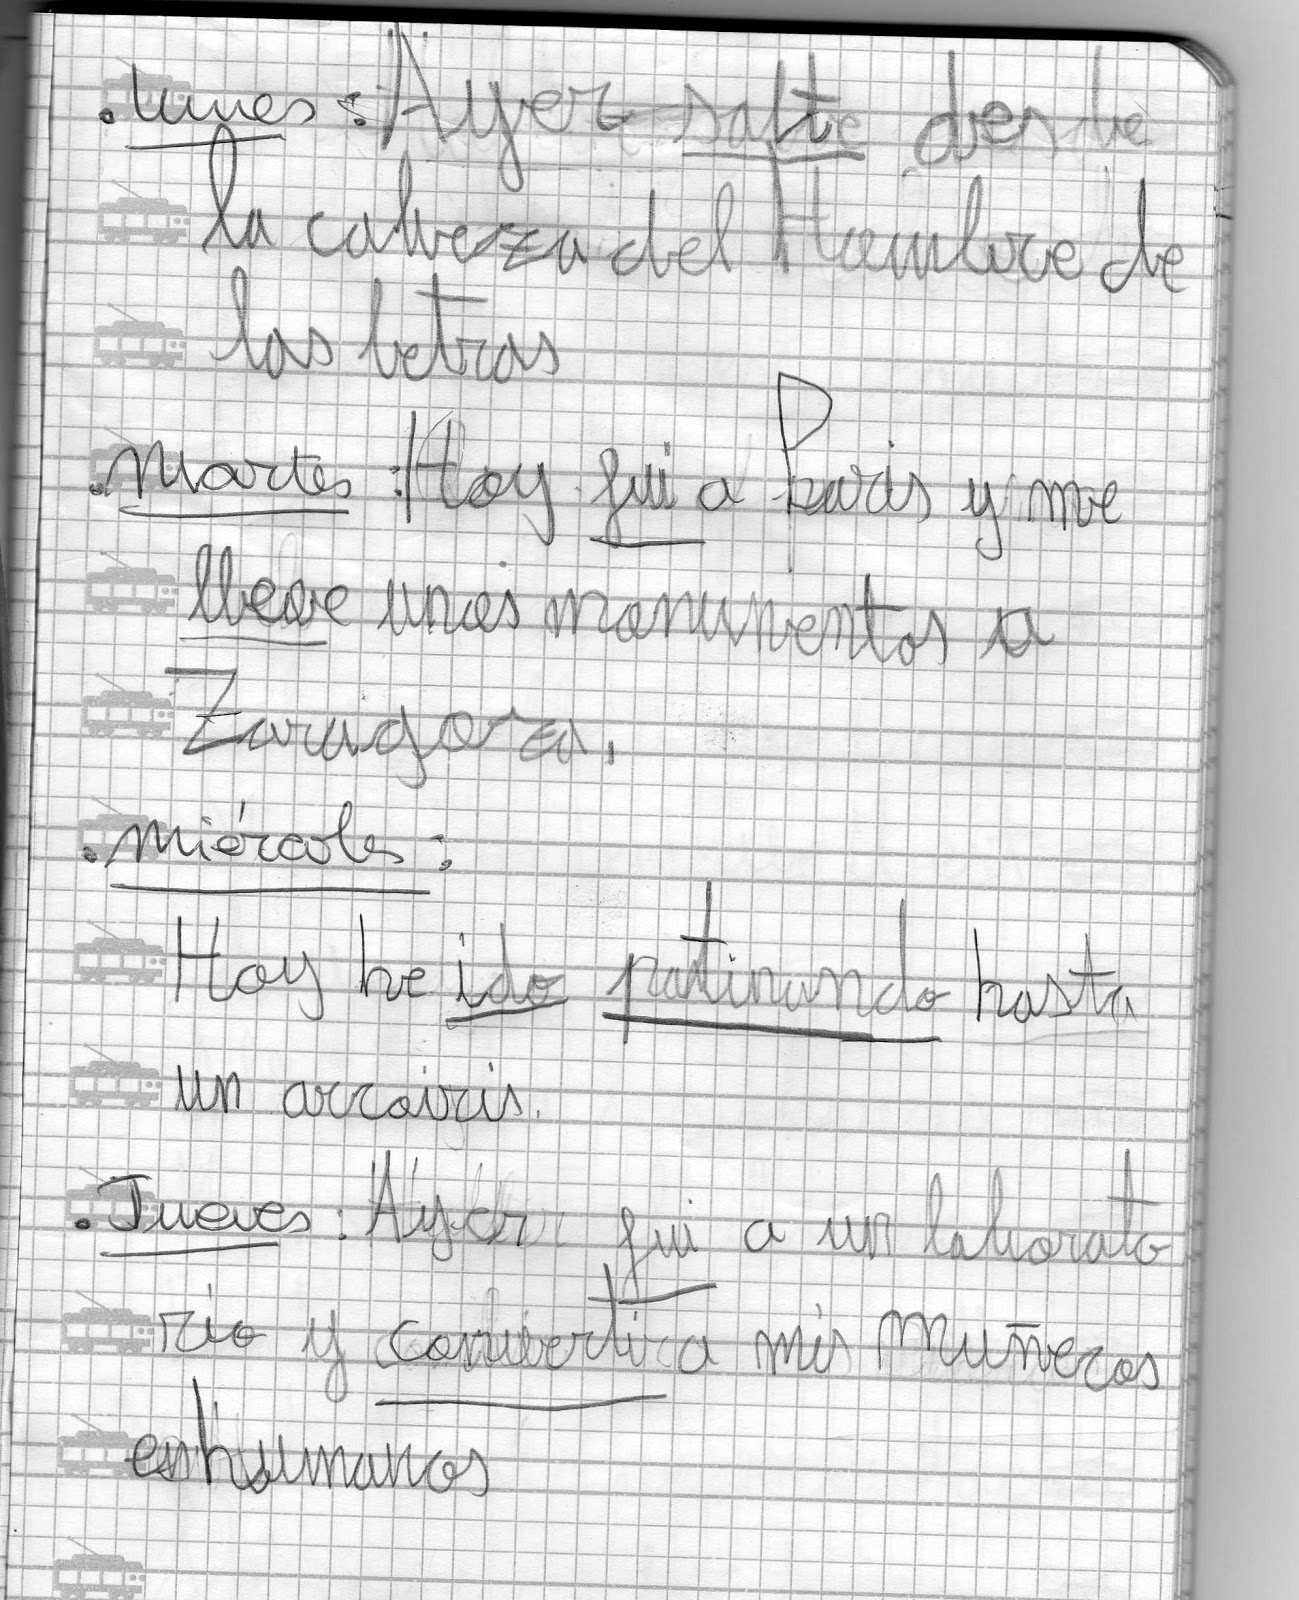 . lunes : Ayer salte desde
la cabeza del Hombre de
las letras
. Martes : Hoy fui a Paris y me
lleve unos monumentos a
Zaragoza.
. Miércoles :
Hoy he ido patinando hasta
un arcoiris.
. Jueves : Ayer fui a un laborato
rio y convertir a mis Muñecos
en humanos